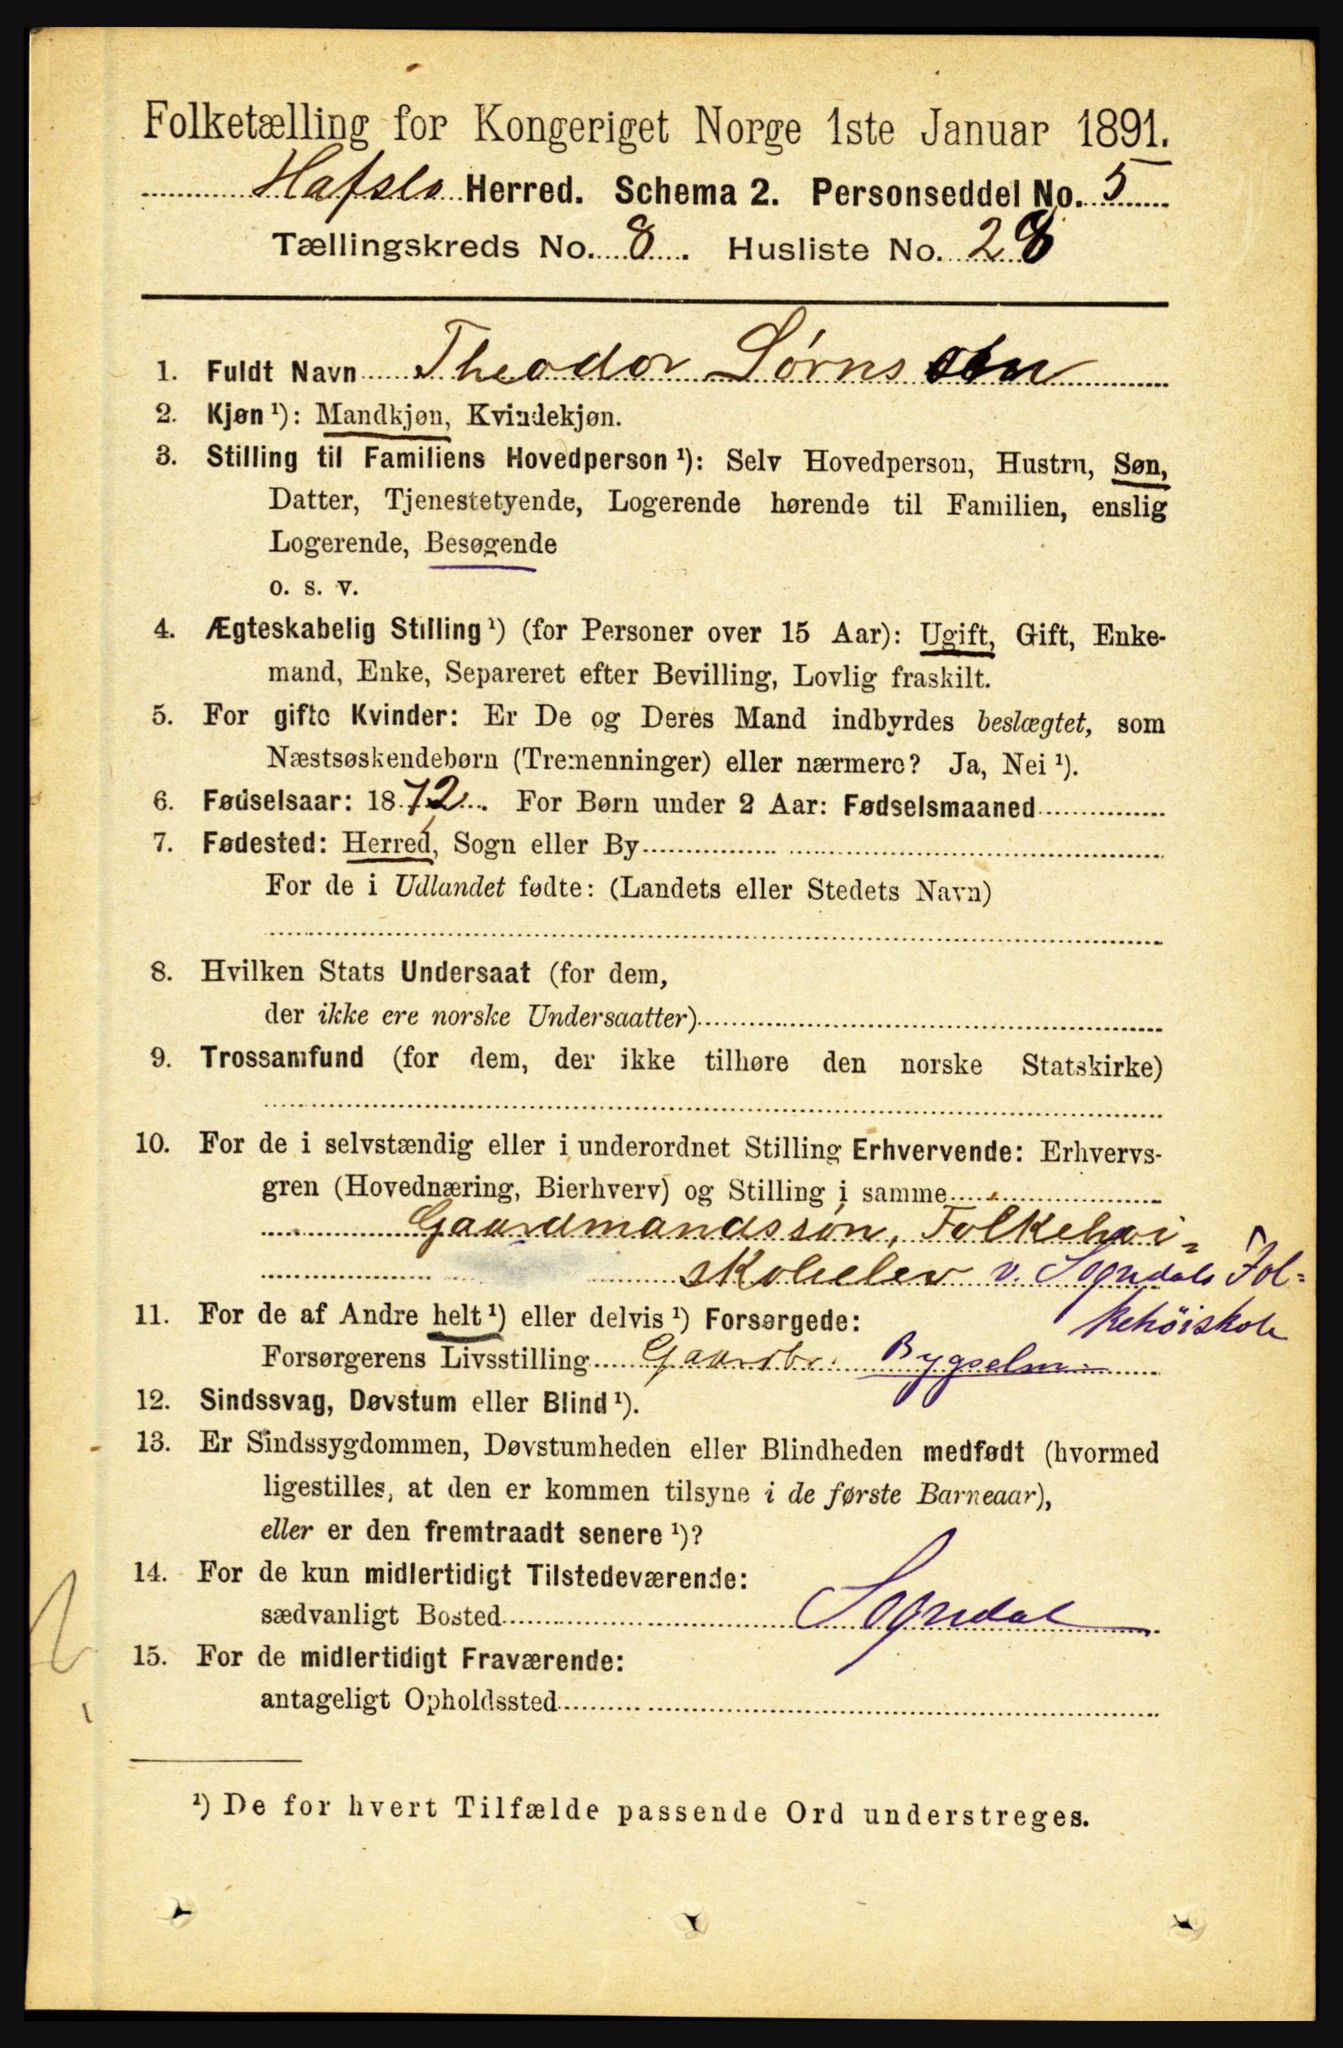 Folketælling for Kongeriget Norge 1ste Januar 1891.
Hafslo Herred. Schema 2. Personseddel No. 5
Tællingskreds No. 8. Husliste No. 28
1. Fuldt Navn Theodor Sørnssen
2. Kjøn ¹): Mandkjøn, Kvindekjøn.
3. Stilling til Familiens Hovedperson ¹): Selv Hovedperson, Hustru, Søn,
Datter, Tjenestetyende, Logerende hørende til Familien, enslig
Logerende, Besøgende
o. s. v.
4. Ægteskabelig Stilling ¹) (for Personer over 15 Aar): Ugift, Gift, Enke-
mand, Enke, Separeret efter Bevilling, Lovlig fraskilt.
5. For gifte Kvinder: Er De og Deres Mand indbyrdes beslægtet, som
Næstsøskendebørn (Tremenninger) eller nærmere? Ja, Nei ¹).
6. Fødselsaar: 1872. For Børn under 2 Aar: Fødselsmaaned
7. Fødested: Herred, Sogn eller By
For de i Udlandet fødte: (Landets eller Stedets Navn)
8. Hvilken Stats Undersaat (for dem,
der ikke ere norske Undersaatter)
9. Trossamfund (for dem, der ikke tilhøre den norske Statskirke)
10. For de i selvstændig eller i underordnet Stilling Erhvervende: Erhvervs-
gren (Hovednæring, Bierhverv) og Stilling i samme
Gaardmandssøn, Folkehøi=
skoleelev v. Sogndals Fol=
kehöiskole
11. For de af Andre helt ¹) eller delvis ¹) Forsørgede:
Forsørgerens Livsstilling Gaardbr. Bygselm:
12. Sindssvag, Døvstum eller Blind ¹).
13. Er Sindssygdommen, Døvstumheden eller Blindheden medfødt (hvormed
ligestilles, at den er kommen tilsyne i de første Barneaar),
eller er den fremtraadt senere ¹)?
14. For de kun midlertidigt Tilstedeværende:
sædvanligt Bosted Sogndal
15. For de midlertidigt Fraværende:
antageligt Opholdssted
¹) De for hvert Tilfælde passende Ord understreges.